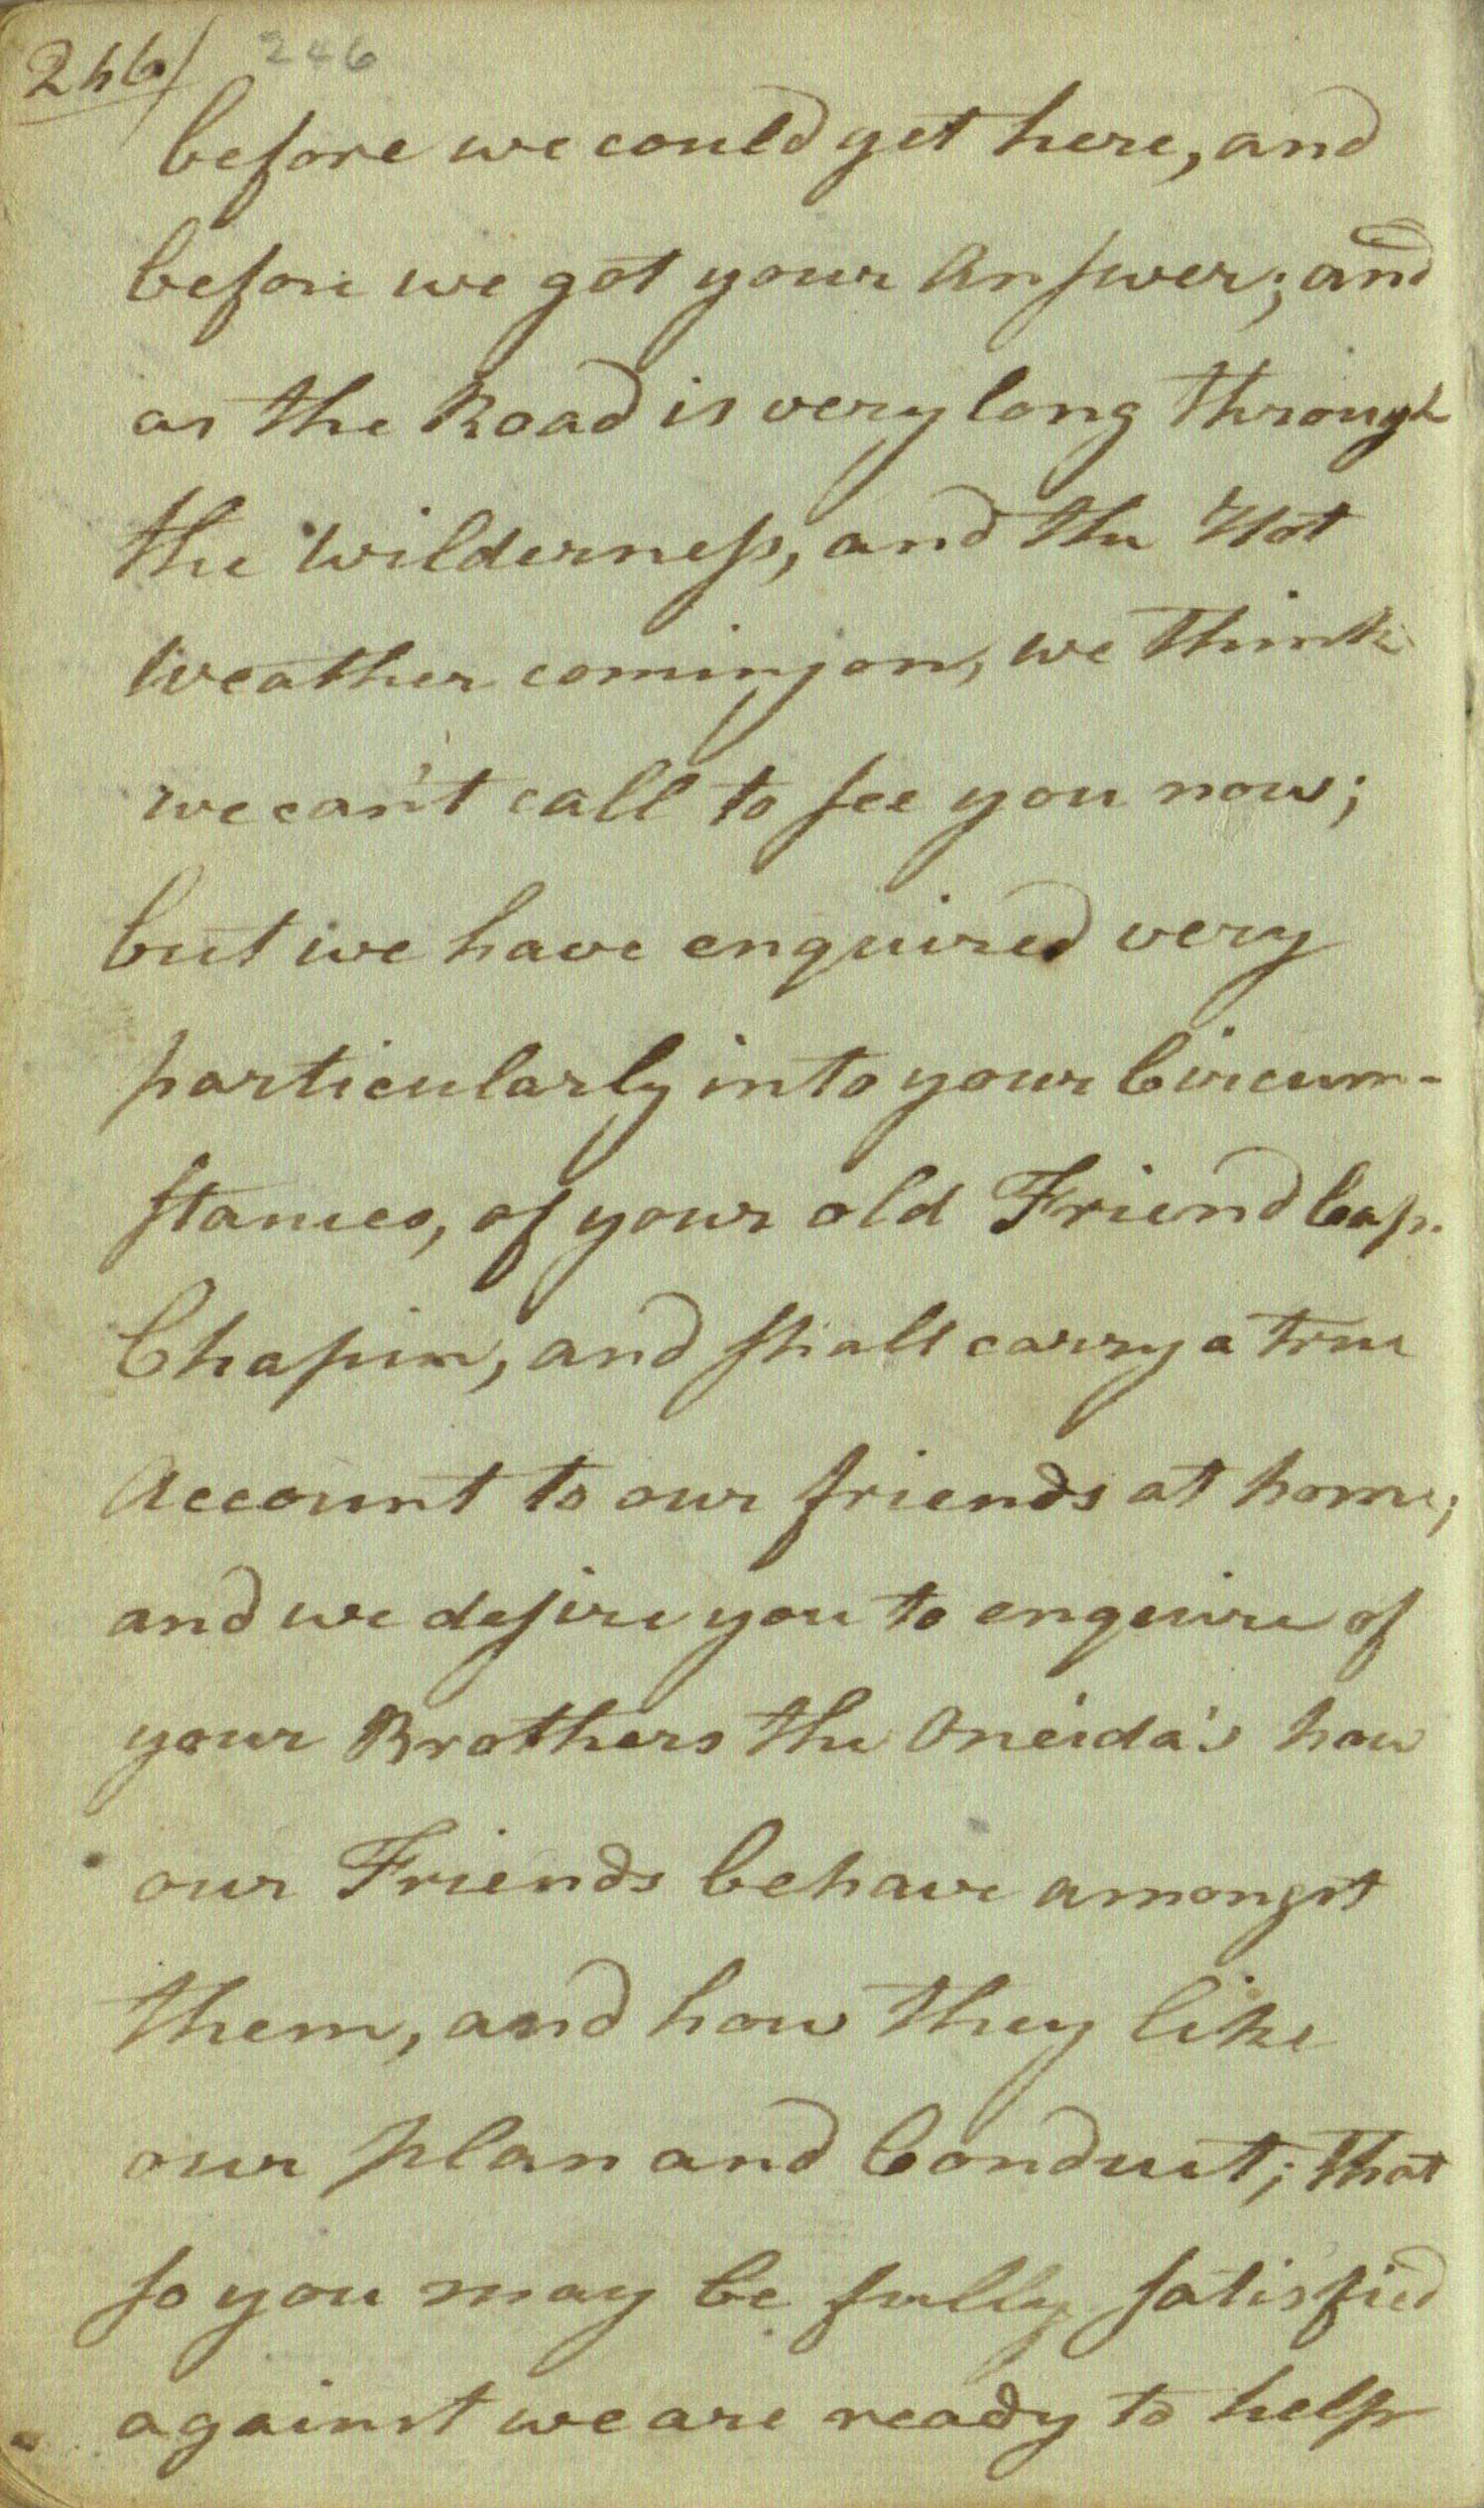 246/ 246
before we could get here, and
before we got your Answer; and
as the Road is very long through
the Wilderness, and the Hot
Weather coming on, we think
we can't call to see you now;
but we have enquired very
particularly into your Circum-
stances, of your old Friend Cap.
Chapin, and shall carry a true
Account to our friends at home;
and we desire you to enquire of
your Brothers the Oneida's how
our Friends behave amongst
them, and how they like
our plan and Conduct; that
so you may be fully satisfied
against we are ready to help